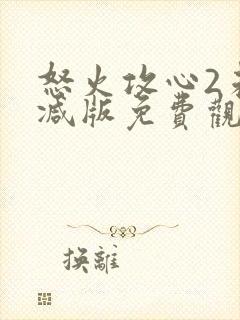 怒火攻心2未
减版免費觀
換離